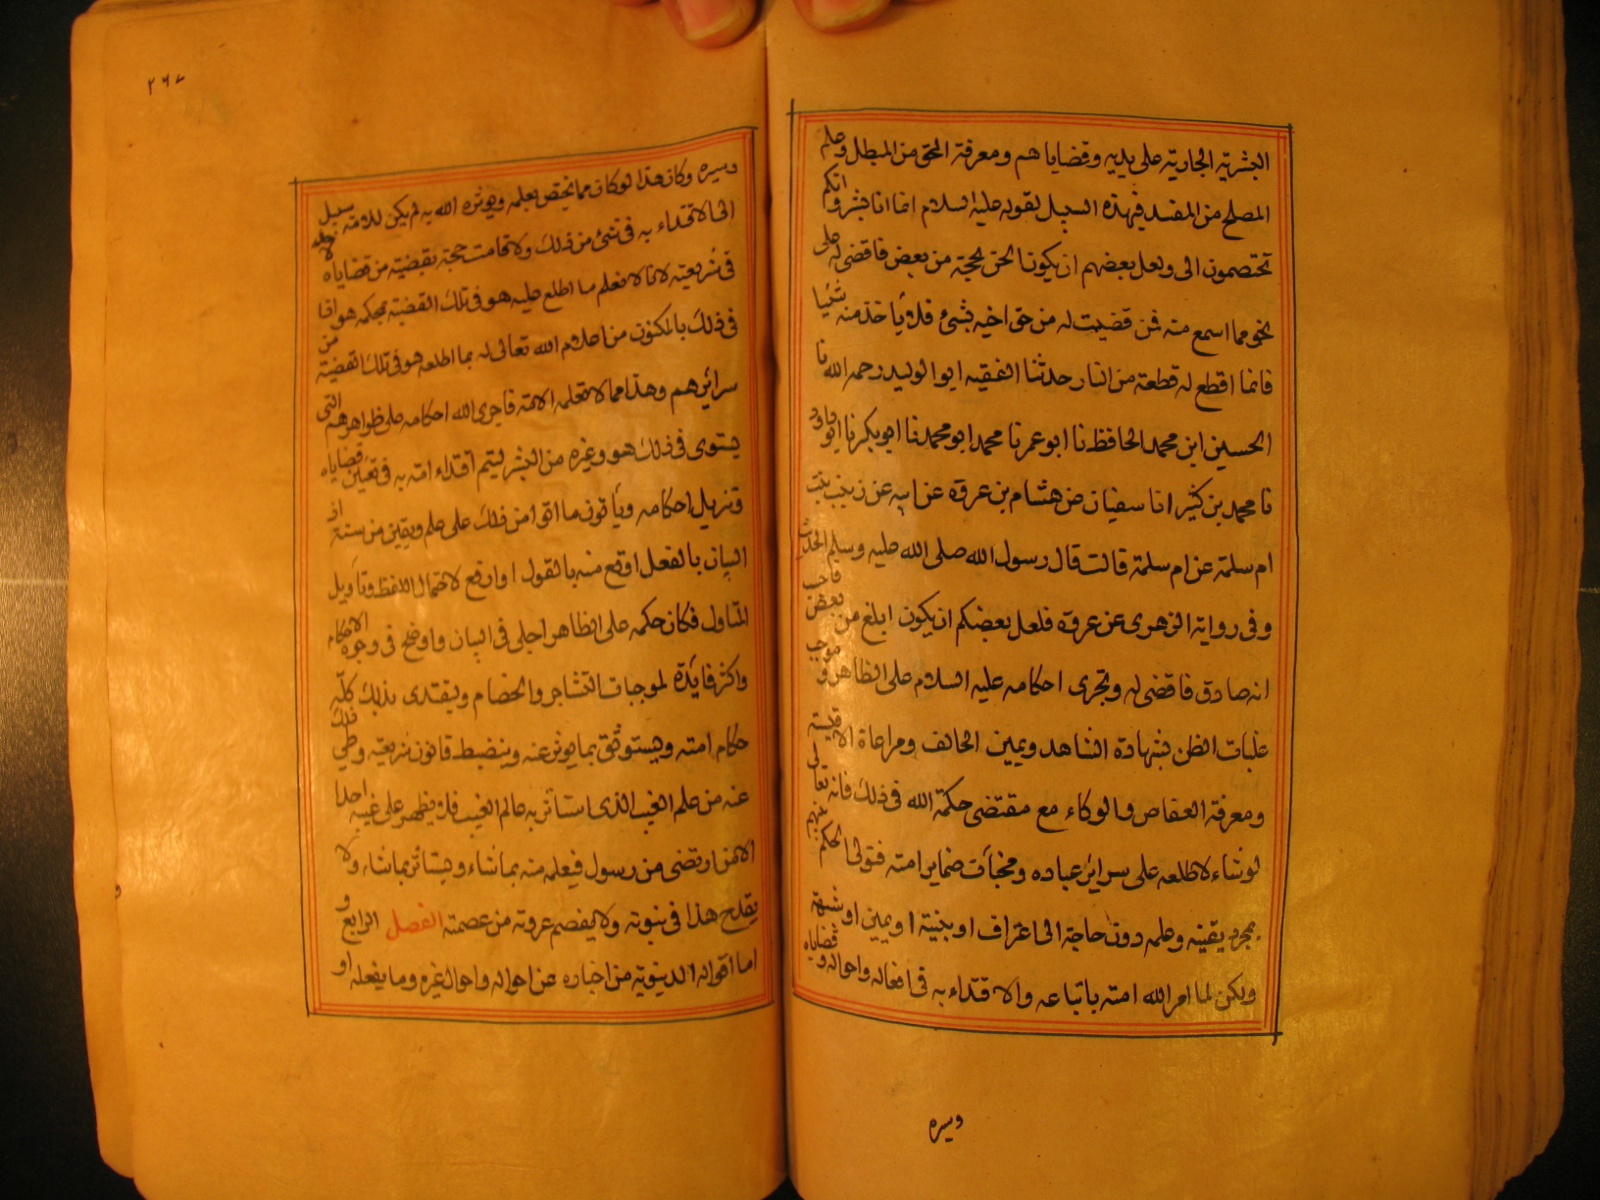 البشرية الجارية على يديه وقضاياهم ومعرفة المحق من المبطل وعلم
المصلح من المفسد فبهذه السبيل لقوله عليه السلام انما انا بشر وانكم
تختصمون الى ولعل بعضهم ان يكون الحق بحجته من بعض فاقضى له على
نحو مما اسمع منه فمن قضيت له من حق اخيه بشئ فلا ياخذ منه شئيا
فانما اقطع له قطعة من النار حدثنا الفقيه ابو الوليد رحمه الله نا
الحسين ابن محمد الحافظ نا ابو عمر نا محمد ابو محمد نا ابو بكر نا ابو داود
نا محمد بن كثير انا سفيان عن هشام بن عروة عن ابيه عن زينب بنت
ام سلمة عن ام سلمة قالت قال رسول الله صلى الله عليه وسلم الحديث
وفى رواية الزهرى عن عروة فلعل بعضكم ان يكون ابلغ من بعض فاحب
انه صادق فاقضى له وتجرى احكامه عليه السلام على الظاهر و موجب
غلبات الظن بشهادة الشاهد ويمين الحالف ومراعاة الاقيسة
ومعرفة العفاص والوكاء مع مقتضى حكمة الله فى ذلك فانه تعالى
لوشاء لاطلعه على سراير عباده ومخبآت ضماير امته فتولى الحكم بينهم
بمجرد يقينه وعلمه دون حاجة الى اعتراف او بينة او يمين او شبهة
ولكن لما امر الله امته باتباعه والاقتداء به فى افعاله واحواله وقضاياه
وسيره
٢٦٧
وسيره وكان هذا لوكان مما يختص بعلمه ويوثره الله به لم يكن للامة سبيل
الى الاقتداء به فى شئ من ذلك ولا قامت حجة بقضية من قضاياه لاحد
فى شريعته لانا لا نعلم ما اطلع عليه هو فى تلك القضية بحكمه هو اذا
فى ذلك بالمكنون من اعلام الله تعالى له بما اطلعه هو فى تلك القضية من
سرائرهم وهذا مما لا تعلمه الامة فاجرى الله احكامه على ظواهرهم التى
يستوى فى ذلك هو وغيره من البشر ليتم اقتداء امته به فى تعيين قضاياه
وتنزيل احكامه وياتون ما اتوا من ذلك على علم ويقين من سنته اذ
البيان بالفعل اوقع منه بالقول اوارفع لاحتمال اللفظ وتاويل
المتاول فكان حكمه على الظاهر اجلى فى البيان واوضح فى وجوه الاحكام
واكثر فايدة لموجبات التشاجر والخصام وليقتدى بذلك كله
حكام امته ويستوثق بما يوثر عنه وينضبط قانون شريعته وطى ذلك
عنه من علم الغيب الذى استاثر به عالم الغيب فلا يظهر على غيبه احدا
الا من ارتضى من رسول فيعلمه منه بما شاء ويستاثر بما شاء ولا
يقدح هذا فى نبوته ولا يفصم عروته من عصمته الفصل الرابع و
اما اقواله الدنيوية من اخباره عن احواله واحوال غيره وما يفعله او